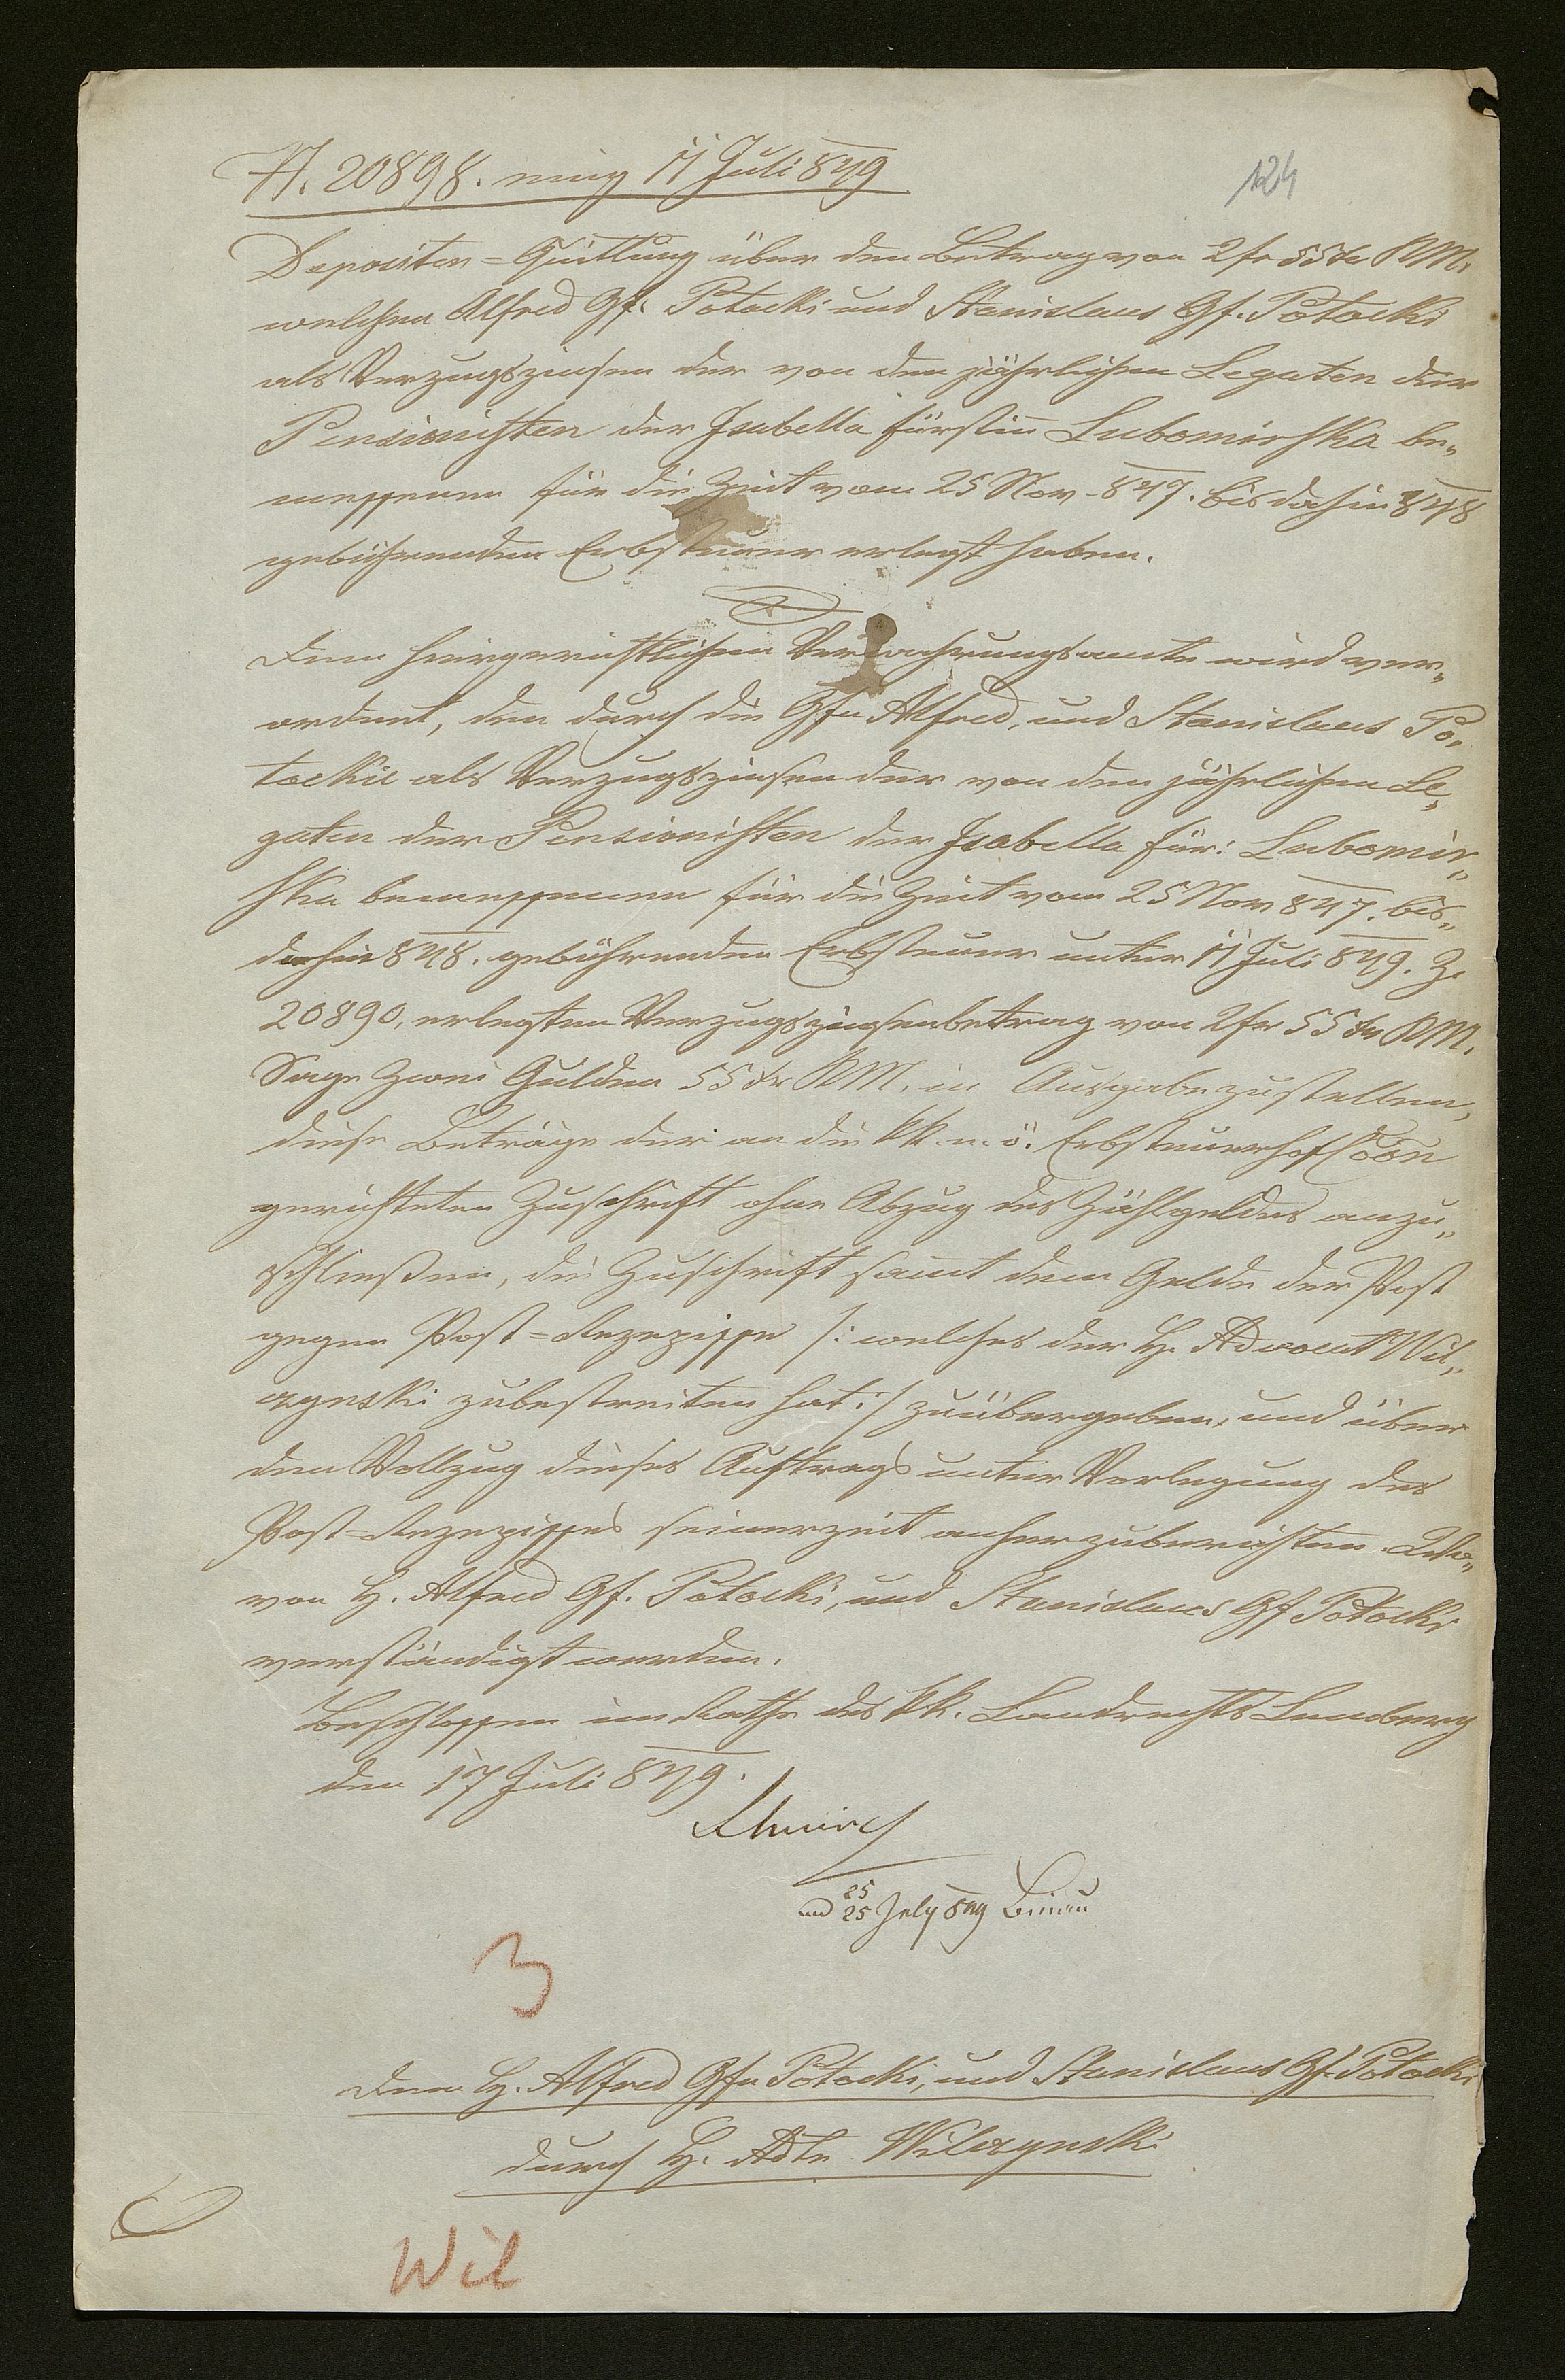 N. 20898. eing 11 Juli 849
124
Depositen=Quittung über den Betrag von 2 fr 55 xr KM.
welchen Alfred Gf. Potocki und Stanislaus Gf. Potocki
als Verzugszinsen der von den jährlichen Legaten der
Pensionisten der Isabella Fürstin Lubomirska be„
messenen für die Zeit vom 25 Nov. 847. bis dahin 848
gebührenden Erbsteuer erlegt haben.
Dem hiergerichtlichen Verwahrungsamte wird ver„
ordnet, den durch die Gfn Alfred, und Stanislaus Po„
tockie als Verzugszinsen der von den jährlichen Le„
gaten der Pensionisten der Isabella Für: Lubomir„
ska bemessenen für die Zeit vom 25 Nov 847. bis„
dahin 848. gebührenden Erbsteuer unter 11 Juli 849. Z.
20890, erlegten Verzugszinsenbetrag von 2 fr 55 xr KM.
Sage Zwei Gulden 55 xr KM. in Ausgabe zustellen,
diese Beträge der an die kk. n. ö. Erbsteuerhofcoon
gerichteten Zuschrift ohne Abzug des Zählgeldes anzu„
schließen, die Zuschrift samt dem Gelde der Post
gegen Post=Rezepisse /: welches der H. Advocat Wil„
czynski zubestreiten hat :/ zuübergeben, und über
den Vollzug dieses Auftrags unter Vorlegung des
Post=Rezepisses seinerzeit anher zuberichten. Wo„
von H. Alfred Gf. Potocki, und Stanislaus Gf Potocki
verständigt werden.
Beschlossen im Rathe des kk. Landrechts Lemberg
den 17 Juli 849.
25
25 July 849
3
Dem H. Alfred Gfn Potocki, und Stanislaus Gf. Potocki
durch H. Adtn Wilczynski
Wil